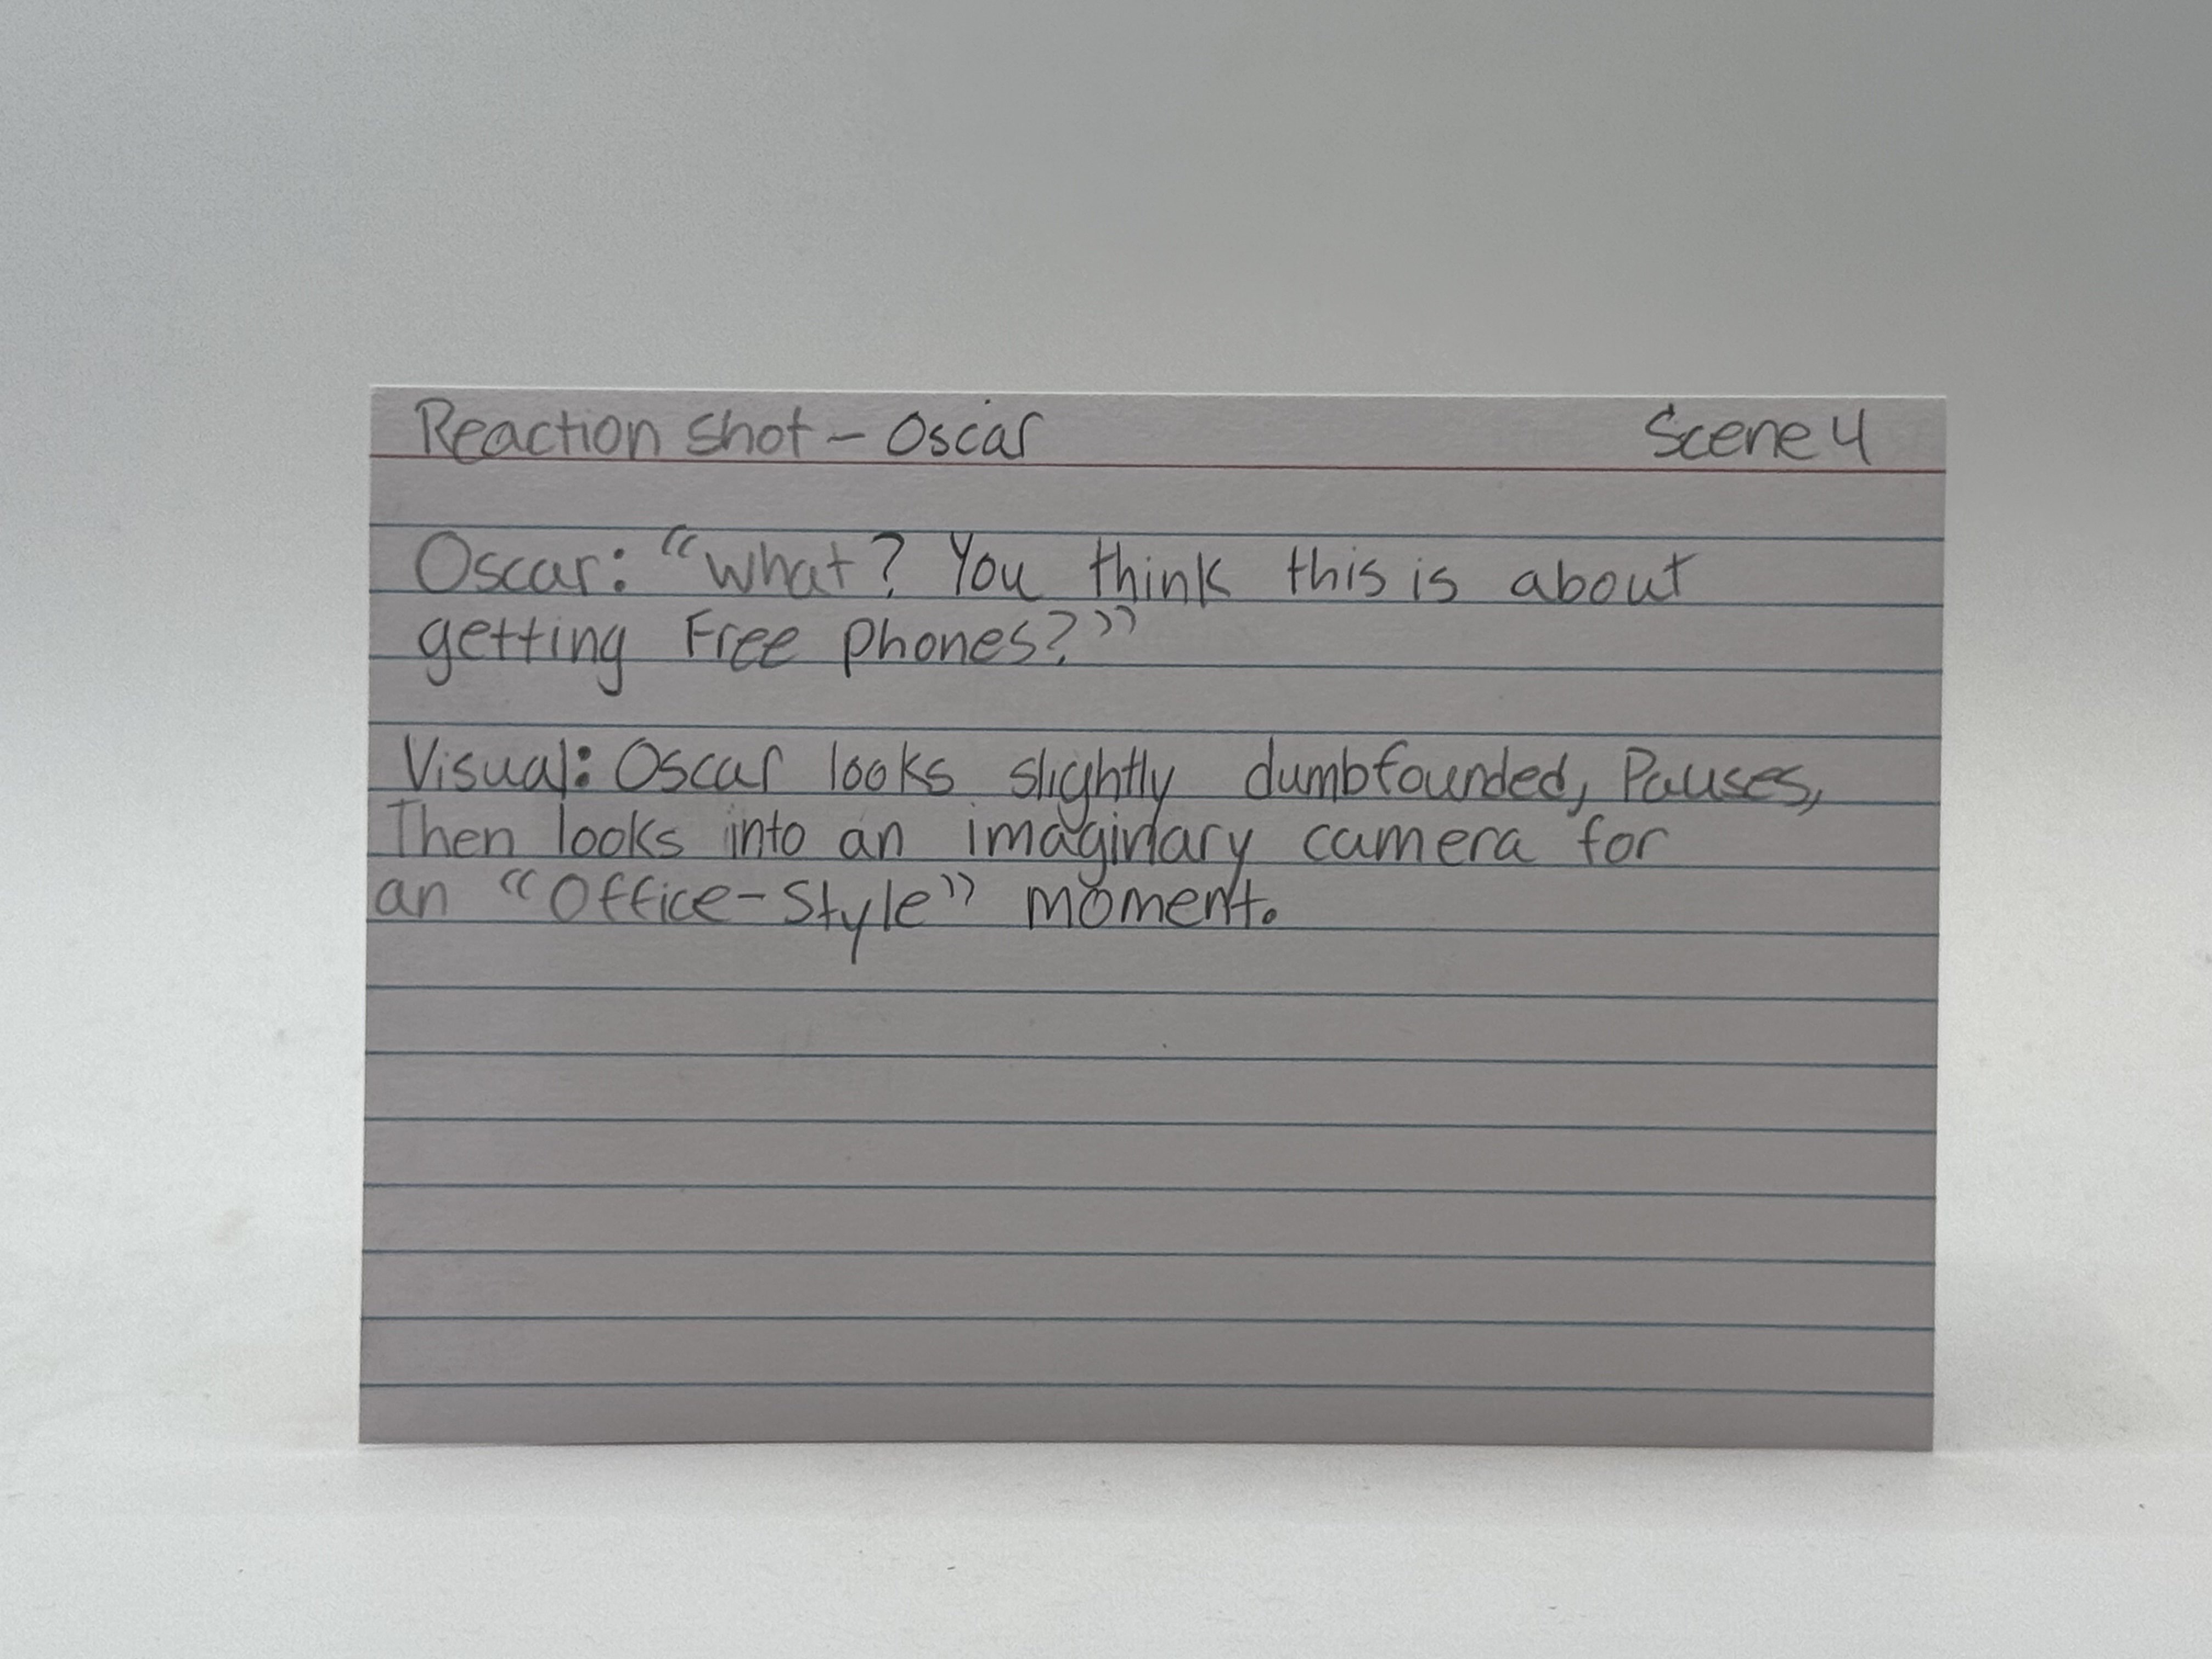 Reaction Shot – Oscar Scene 4
Oscar: “What? You think this is about
getting Free Phones?”
Visual: Oscar looks slightly dumbfounded, Pauses,
Then looks into an imaginary camera for
an “Office-Style” moment.